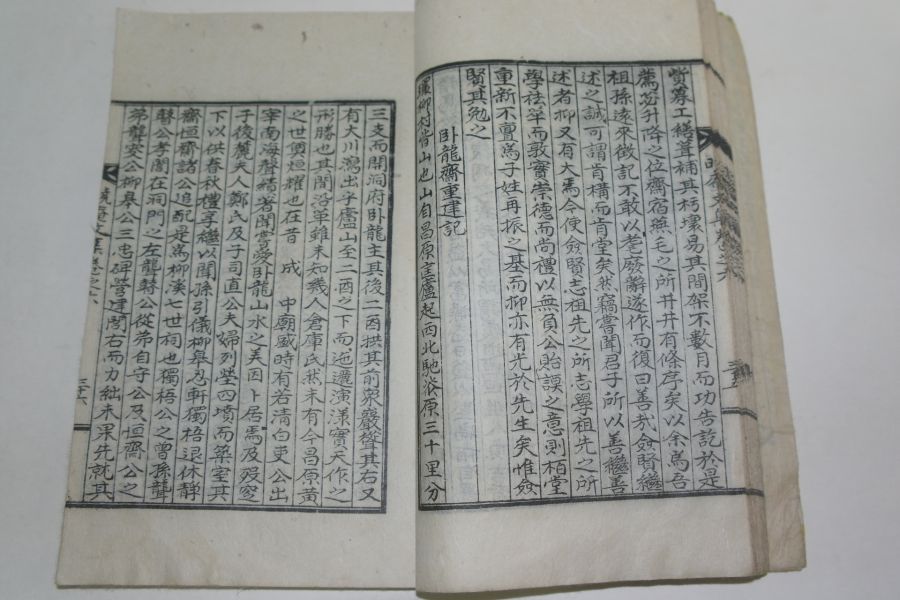 貲募工繕葺補其朽壞易其間架不數月而功告訖於是
薦苾升降之位齋宿燕毛之所井井有條序矣以余爲呂
祖孫遠來徵記不敢以耄廢辭遂作而復曰善哉僉賢繼
述之誠可謂肯構而肯堂矣然竊嘗聞君子所以善繼善
述者抑又有大焉今使僉賢志祖先之所志學祖先之所
學祛華而敦實崇德而尚禮以無負公貽謨之意則栢堂
重新不亶爲子姓再振之基而抑亦有光於先生矣惟僉
賢其勉之
臥龍齋重建記
柳村皆山也山自昌原匡廬起西北馳于原三十里分
三支而開洞府臥龍主其後二酉拱其前翠巖聳其右又
有大川瀉出乎廬山至二酉之下而迤邐演漾實天作之
形勝也其間沿革雖未知幾人倉庫氏然未有今昌原黃
之世傳烜耀也在昔 成 中廟盛時有若淸白吏公出
宰南海聲績著聞嘗愛臥龍山水之美因卜居焉及歿窆
子後麓夫人鄭氏及子司直公夫婦列塋四墳而築室其
下以供春秋禮享繼以聞孫引儀柳皐忍軒獨梧退休靜
齋恒齋諸公追配是爲柳溪七世祠也獨梧公之曾孫聾
瞽公孝閭在洞門之左聾瞽公從弟自守公及恒齋公之
弟聾窩公柳皐公三忠碑營建閭右而力絀未果先就其